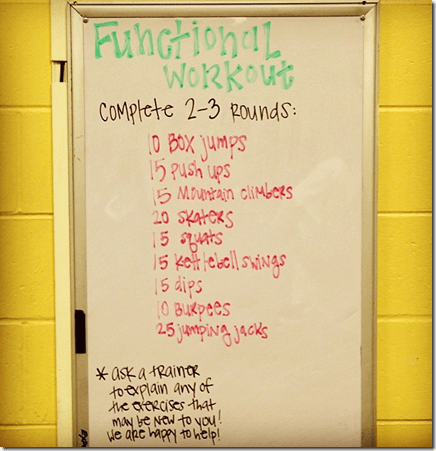 Functional
Workout
Complete 2-3 Rounds:
10 Box jumps
15 push ups
15 Mountain climbers
20 skaters
15 squats
15 Kettlebell swings
15 dips
10 Burpees
25 jumping jacks
* ask a trainer
to explain any of
the exercises that
may be new to you!
we are happy to help!